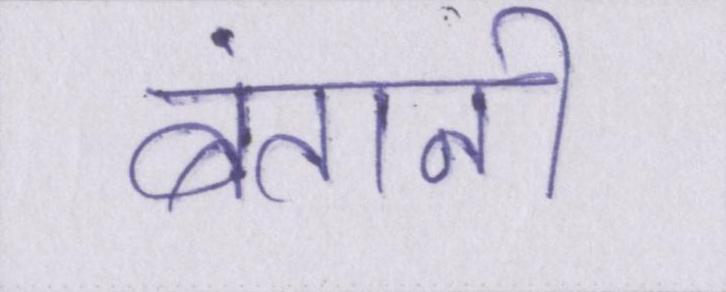 बंतानी